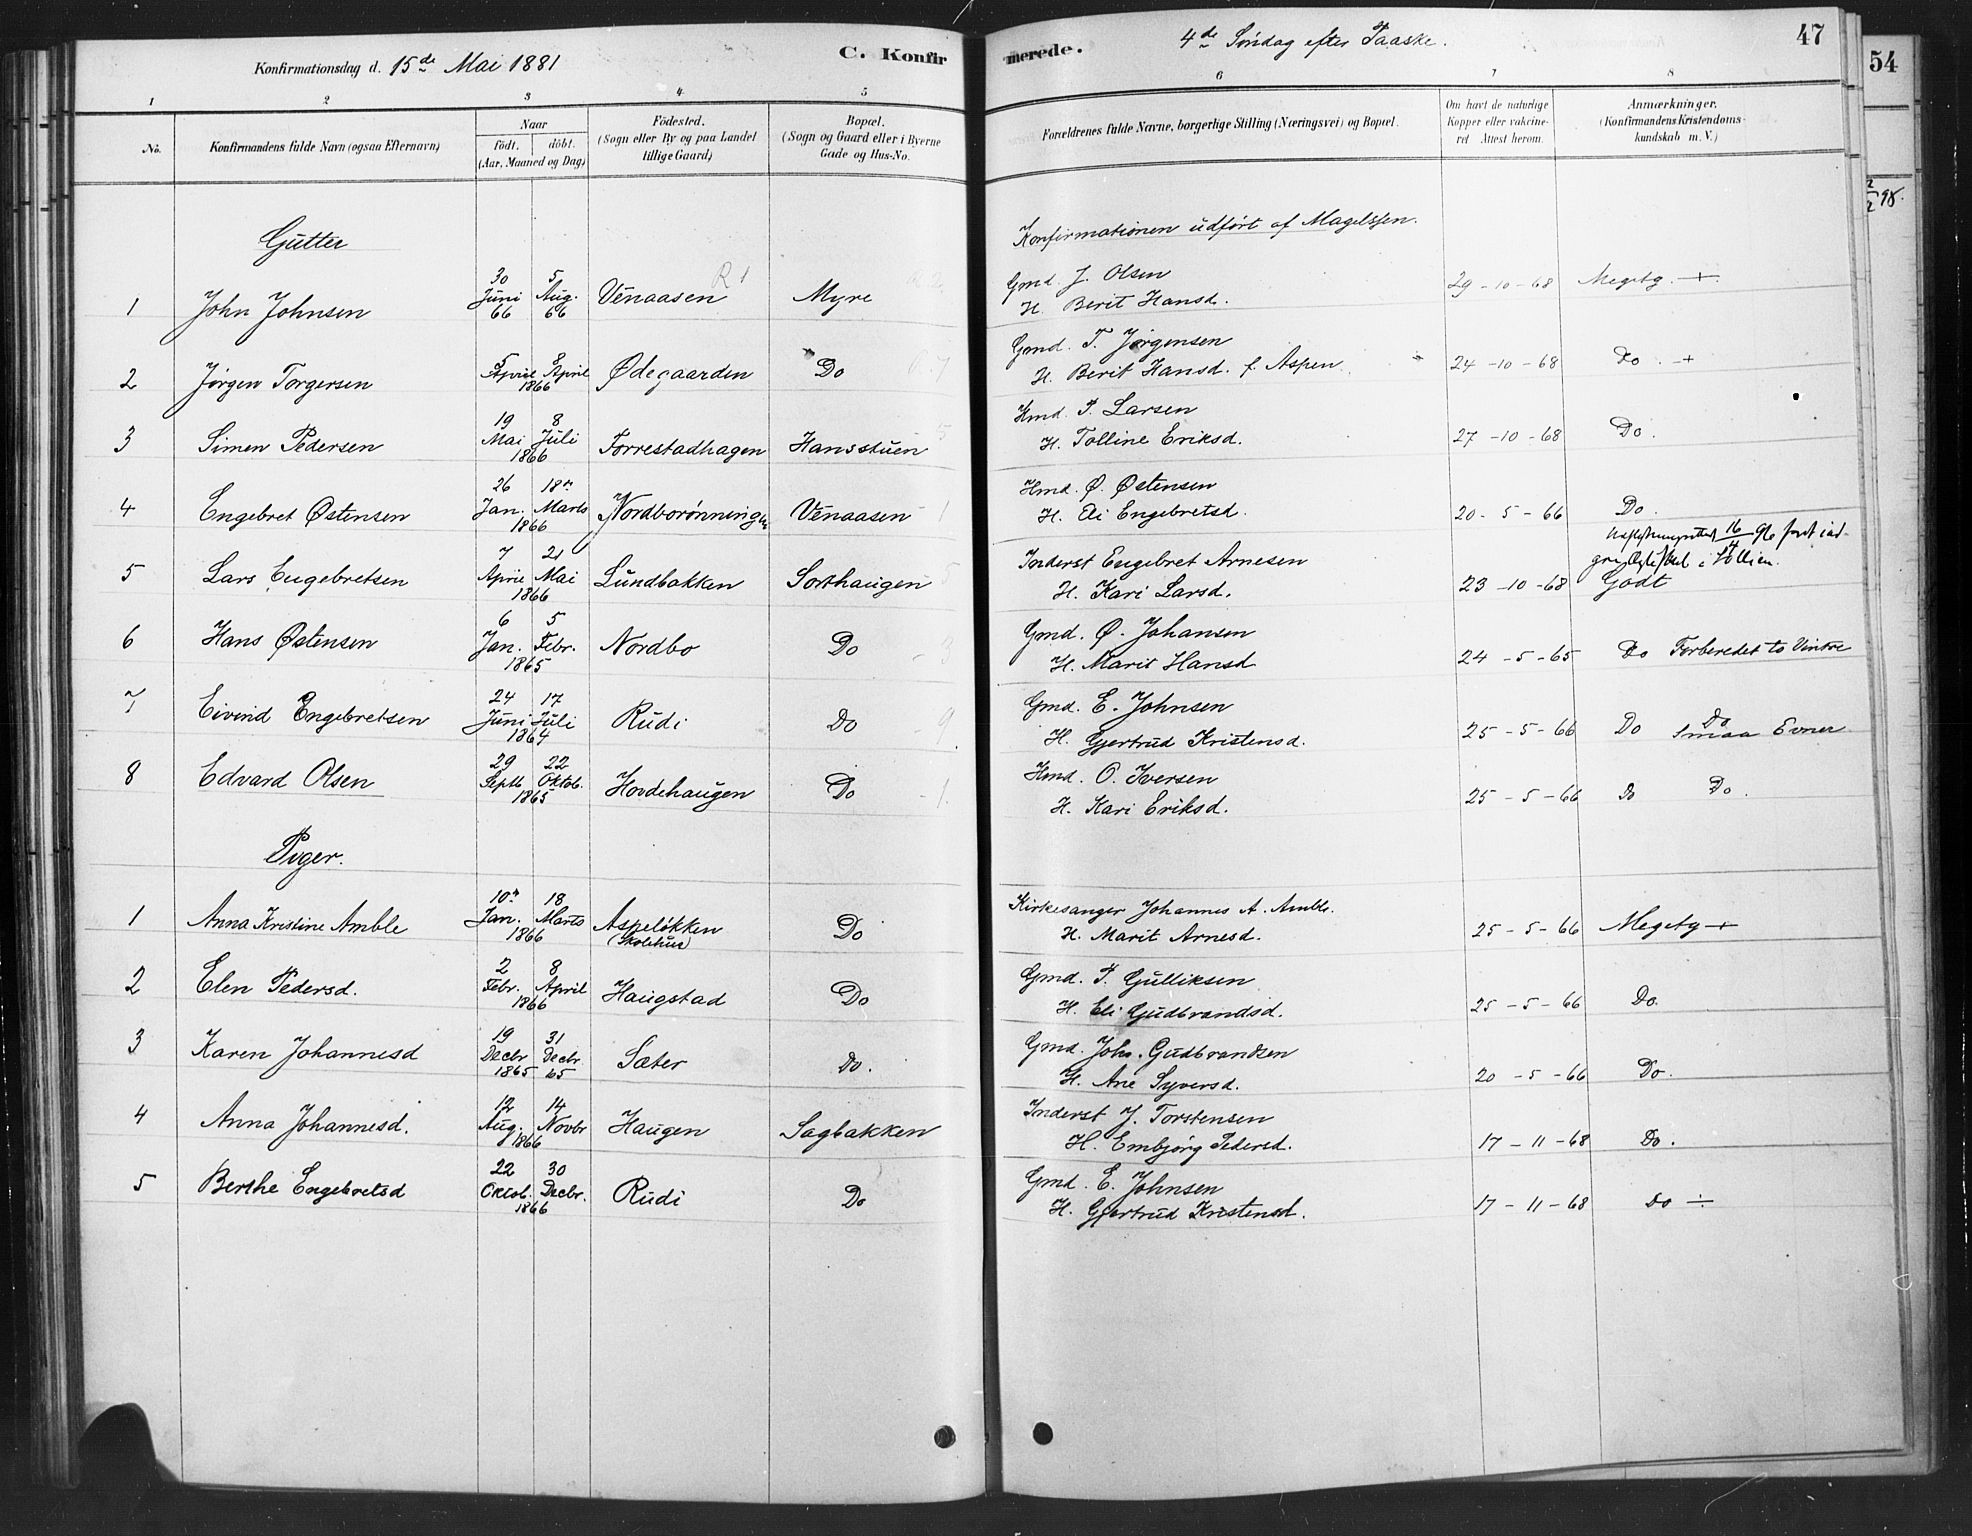 C. Konfirmerede.
47
54
Konfirmationsdag d. 15de Mai 1881
4de Søndag efter Paaske.
1 2 3 4 5 6 7 8
No.
Konfirmandens fulde Navn (ogsaa Efternavn)
Naar
födt. döbt.
(Aar, Maaned og Dag)
Födested.
(Sogn eller By og paa Landet
tillige Gaard)
Bopæl.
(Sogn og Gaard eller i Byerne
Gade og Hus-No.
Forældrenes fulde Navne, borgerlige Stilling (Næringsvei) og Bopæl.
Om havt de naturlige
Kopper eller vakcine-
ret Attest herom.
Anmærkninger.
(Konfirmandens Kristendoms-
kundskab m. V.)
Gutter
Konfirmationen udført af Magelssen.
1 John Johnsen 30 Juni 66 5 Aug. 66 Venaasen R 1 Myre Gmd. J. Olsen
H. Berit Hansd. 29-10-68 Megetg. +
2 Jørgen Torgersen 5 April 8 April 1866 Ødegaarden Do Gmd. T. Jørgensen
H. Berit Hansd. f. Aspen 24-10-68 Do. +
3 Simen Pedersen 19 Mai 8 Juli 1866 Forrestadhagen Hansstuen Hmd. P. Larsen
H. Tolline Eriksd. 27-10-68 Do.
4 Engebret Østensen 26 Jan. 18de Marts 1866 Nordborønningen Venaasen - 1 Hmd. Ø. Østensen
H. Eli Engebretsd. 20-5-66 Do.
16/4 i Sollien.
5 Lars Engebretsen 7 April 21 Mai 1866 Lundbakken Sorthaugen Inderst Engebret Arnesen
H. Kari Larsd. 23-10-68 Godt
6 Hans Østensen 6 Jan. 5 Febr. 1865 Nordbo Do - 3 Gmd. Ø. Johansen
H. Marit Hansd 24-5-65 Do Forberedet to Vintre
7 Eivind Engebretsen 24 Juni 17 Juli 1864 Rudi Do - 9. Gmd. E. Johnsen
H. Gjertrud Kristensd. 25-5-66 Do Do Smaa Evner
8 Edvard Olsen 29 Septb 22 Oktob. 1865 Hovdehaugen Do - 1. Hmd. O. Iversen
H. Kari Eriksd. 25-5-66 Do Do.
Piger.
1 Anna Kristine Amble 10de Jan. 18 Marts 1866 Aspeløkken (Skolehus) Do Kirkesanger Johannes A. Amble.
H. Marit Arnesd. 25-5-66 Megetg +
2 Elen Pedersd. 2 Febr. 8 April 1866 Haugstad Do Gmd. P. Gulliksen
H. Eli Gudbrandsd. 25-5-66 Do.
3 Karen Johannesd 19 Decbr 1865 31 Decbr 65 Sæter Do. Gmd. Johs. Gudbrandsen
H. Ane Syversd. 20-5-66 Do.
4 Anna Johannesd. 12 Aug. 14 Novbr 1866 Haugen Sagbakken Inderst J. Torstensen
H. Embjørg Pedersd. 17-11-68 Do.
5 Berthe Engebretsd 22 Oktob. 30 Decbr. 1866 Rudi Do Gmd. E. Johnsen
H. Gjertrud Kristensd. 17-11-68 Do ÷